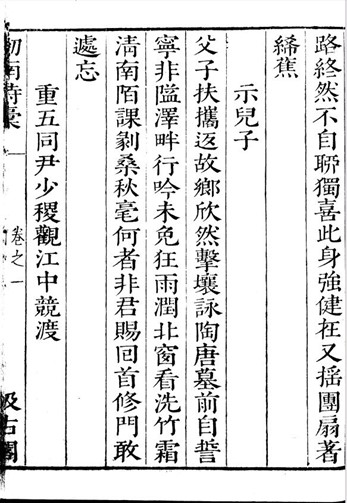 路終然不自聊獨喜此身強健在又揺團扇著
絺蕉
示兒子
父子扶攜返故鄉欣然擊壤詠陶唐墓前自誓
寧非隘澤畔行吟未免狂雨潤北窗看洗竹霜
清南陌課剝桑秋毫何者非君賜回首修門敢
遽忘
重五同尹少稷觀江中競渡
劍南詩稾
卷之一
汲古閣